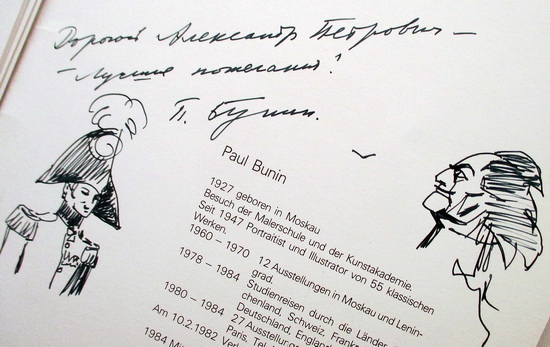 Дорогой Александр Петрович —
— Лучшие пожелания!
П. Бунин.
Paul Bunin
1927 geboren in Moskau
Besuch der Malerschule und der Kunstakademie.
Seit 1947 Portraitist und Illustrator von 55 klassischen
Werken.
1960 – 1970 12 Ausstellungen in Moskau und Lenin-
grad.
1978 – 1984 Studienreisen durch die Länder
chenland, Schweiz, Frank
Deutschland, England
1980 – 1984 27 Ausstellungen
Paris, Tel
Am 10.2.1982 Ver
1984